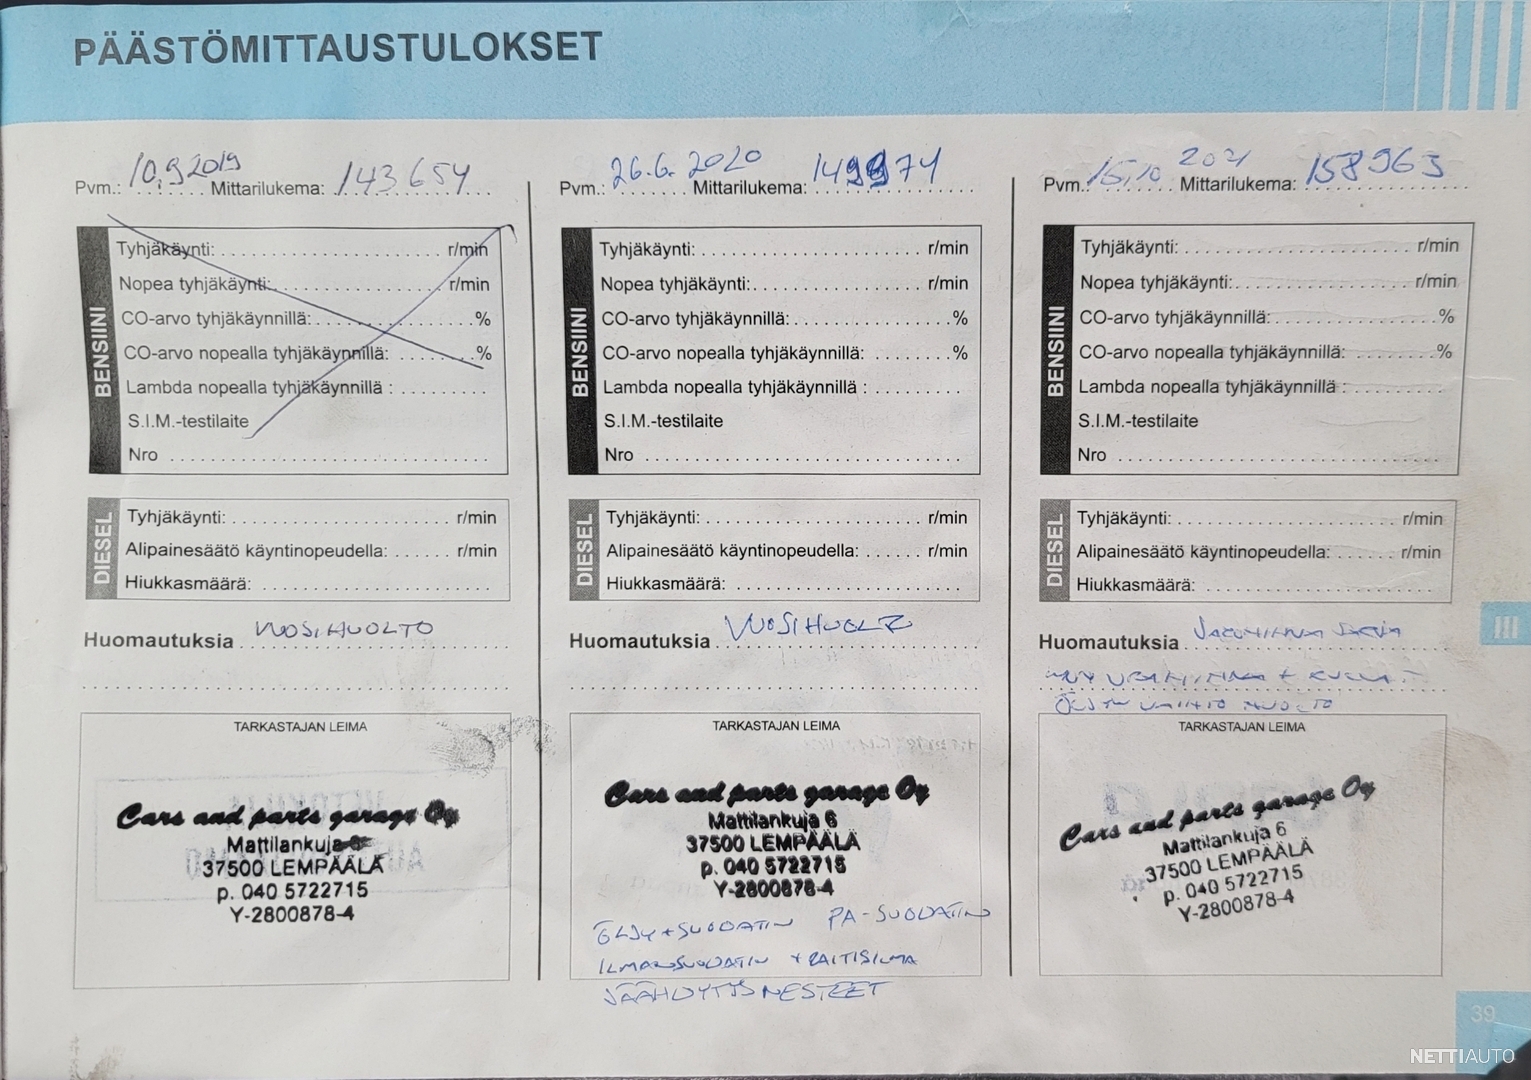 PÄÄSTÖMITTAUSTULOKSET
Pvm.: 10.9 2019 Mittarilukema: 143 654
BENSIINI
Tyhjäkäynti: r/min
Nopea tyhjäkäynti: r/min
CO-arvo tyhjäkäynnillä: %
CO-arvo nopealla tyhjäkäynnillä: %
Lambda nopealla tyhjäkäynnillä :
S.I.M.-testilaite
Nro
DIESEL
Tyhjäkäynti: r/min
Alipainesäätö käyntinopeudella: r/min
Hiukkasmäärä:
Huomautuksia VUOSIHUOLTO
TARKASTAJAN LEIMA
Cars and parts garage Oy
Mattilankuja 6
37500 LEMPÄÄLÄ
p. 040 5722715
Y-2800878-4
Pvm.: 26.6. 2020 Mittarilukema: 149974
BENSIINI
Tyhjäkäynti: r/min
Nopea tyhjäkäynti: r/min
CO-arvo tyhjäkäynnillä: %
CO-arvo nopealla tyhjäkäynnillä: %
Lambda nopealla tyhjäkäynnillä :
S.I.M.-testilaite
Nro
DIESEL
Tyhjäkäynti: r/min
Alipainesäätö käyntinopeudella: r/min
Hiukkasmäärä:
Huomautuksia
TARKASTAJAN LEIMA
Cars and parts garage Oy
Mattilankuja 6
37500 LEMPÄÄLÄ
p. 040 5722715
Y-2800878-4
ÖLJY + SUODATIN PA-SUODATIN
ILMANSUODATIN + RAITISILMA
JÄÄHDYTYSNESTEET
Pvm.: 15.10 2021 Mittarilukema: 158963
BENSIINI
Tyhjäkäynti: r/min
Nopea tyhjäkäynti: r/min
CO-arvo tyhjäkäynnillä: %
CO-arvo nopealla tyhjäkäynnillä: %
Lambda nopealla tyhjäkäynnillä :
S.I.M.-testilaite
Nro
DIESEL
Tyhjäkäynti: r/min
Alipainesäätö käyntinopeudella: r/min
Hiukkasmäärä:
Huomautuksia JAKOHIHNA SARJA
ÖLJYN VAIHTO HUOLTO
TARKASTAJAN LEIMA
Cars and parts garage Oy
Mattilankuja 6
37500 LEMPÄÄLÄ
p. 040 5722715
Y-2800878-4
III
39
NETTIAUTO